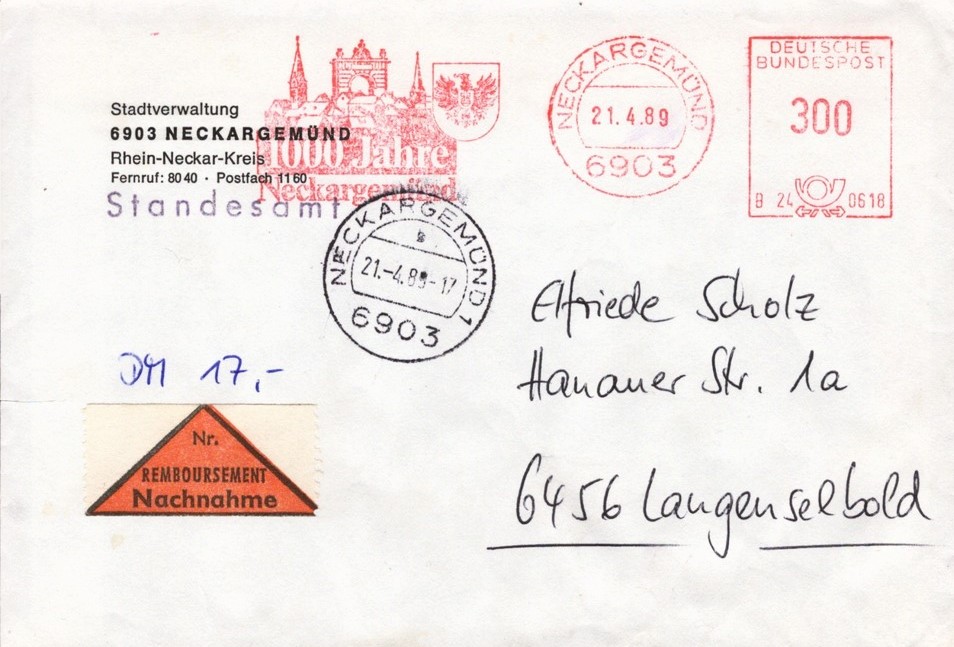 Stadtverwaltung
6903 NECKARGEMÜND
Rhein-Neckar-Kreis
Fernruf: 80 40 · Postfach 11 60
Standesamt
1000 Jahre
Neckargemünd
NECKARGEMÜND
21.4.89
6903
DEUTSCHE
BUNDESPOST
300
B 24 0618
NECKARGEMÜND 1
a
21.-4.89-17
6903
Elfriede Scholz
Hanauer Str. 1a
6456 Langenselbold
DM 17,-
Nr.
REMBOURSEMENT
Nachnahme